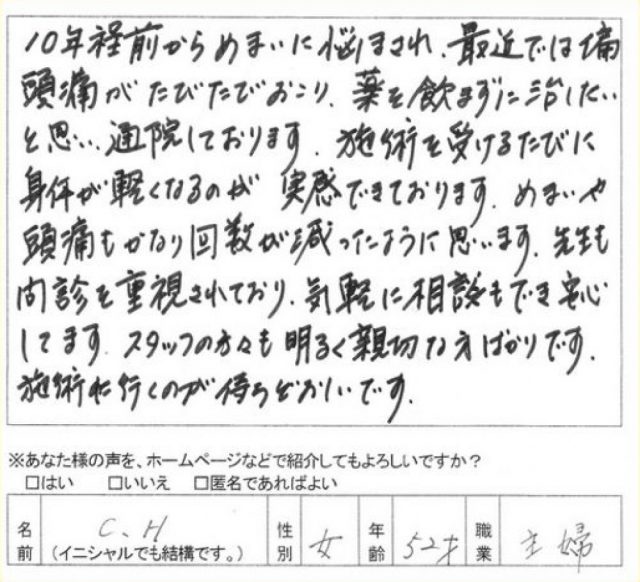 10年程前からめまいに悩まされ、最近では偏
頭痛がたびたびおこり、薬を飲まずに治したい
と思い、通院しております。施術を受けるたびに
身体が軽くなるのが 実感できております。めまいや
頭痛もかなり回数が減ったように思います。先生も
問診を重視されており、気軽に相談もでき安心
してます。スタッフの方々も明るく親切な方ばかりです。
施術に行くのが待ちどおしいです。
※あなた様の声を、ホームページなどで紹介してもよろしいですか?
□はい □いいえ □匿名であればよい
名前 C.H (イニシャルでも結構です。) 性別 女 年齢 52才 職業 主婦